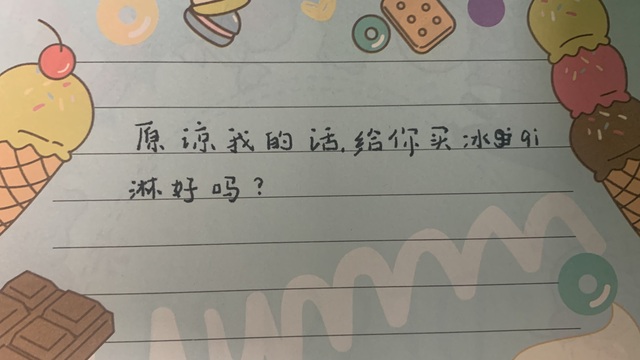 原谅我的话,给你买冰qi
淋好吗?